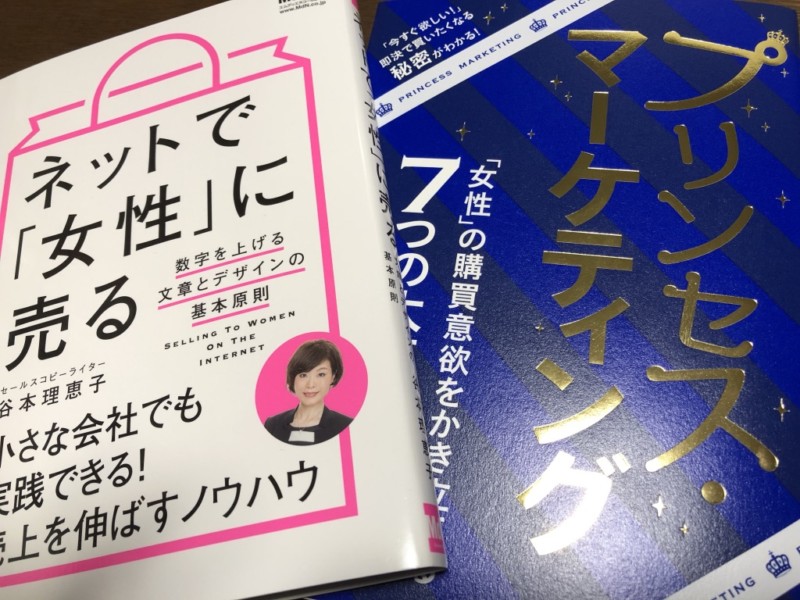 www.MdN.co.jp
ネットで
「女性」に
売る
数字を上げる
文章とデザインの
基本原則
SELLING TO WOMEN
ON THE
INTERNET
セールスコピーライター
谷本理恵子
小さな会社でも
実践できる!
売上を伸ばすノウハウ
基本原則
「今すぐ欲しい!」
即決で買いたくなる
秘密がわかる!
PRINCESS MARKETING
PRINCESS
プリンセス・
マーケティング
「女性」の購買意欲をかき立
7つの
PRINCESS MARKETING